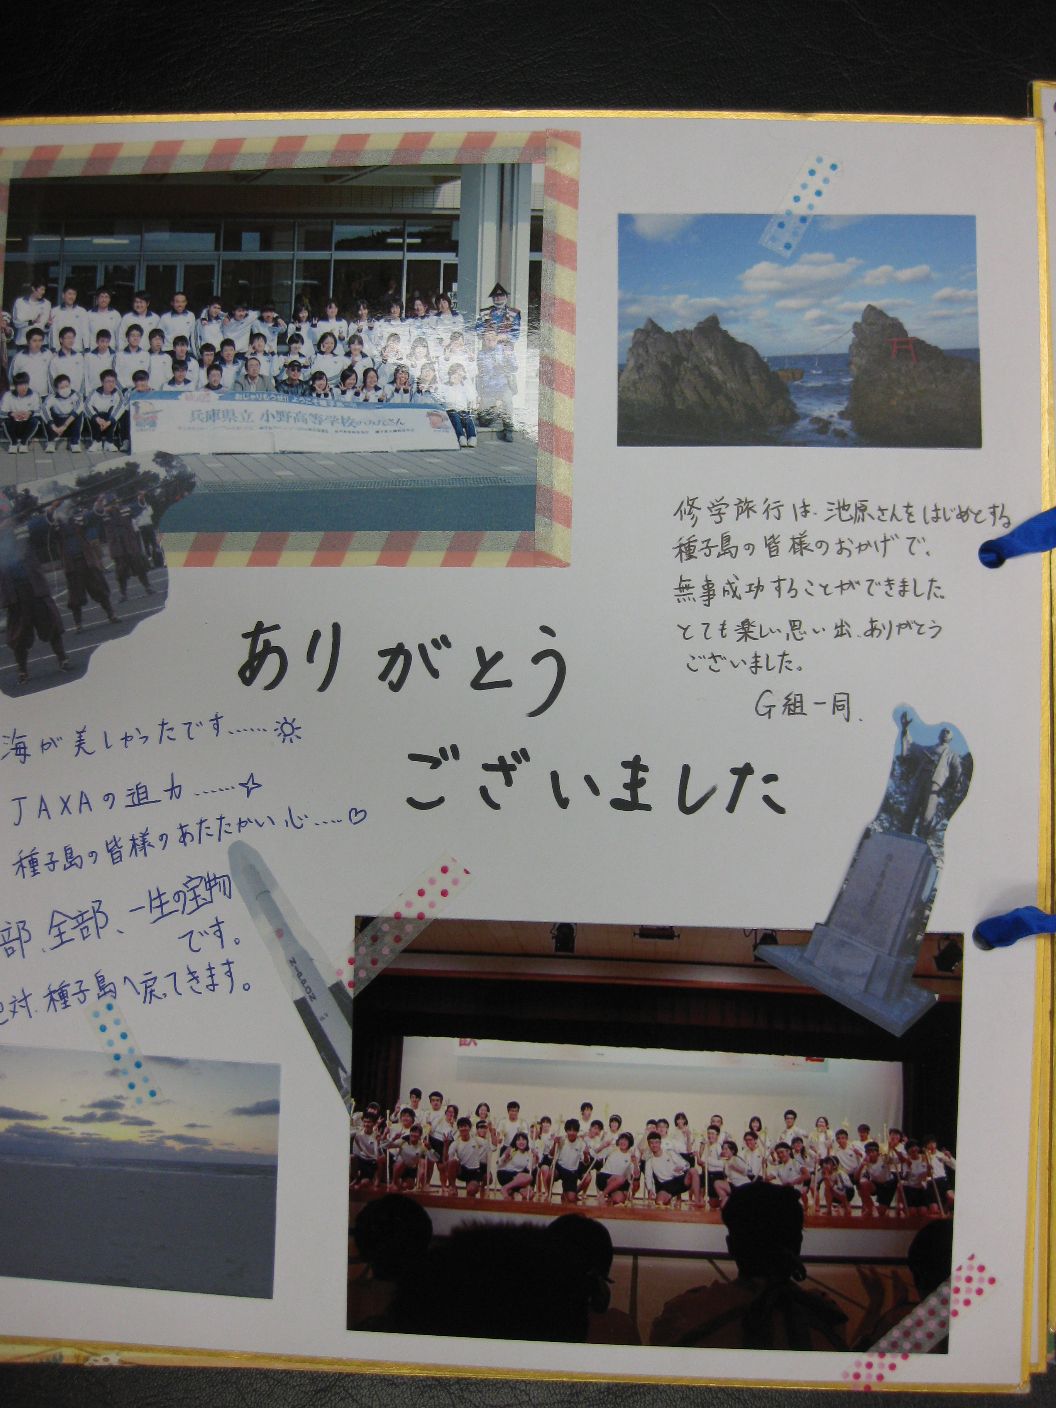 兵庫県立 小野高等学校のみなさん
修学旅行は、池原さんをはじめとする
種子島の皆様のおかげで、
無事成功することができました。
とても楽しい思い出、ありがとう
ございました。
G組一同.
ありがとう
ございました
海が美しかったです……
JAXAの迫力……
種子島の皆様のあたたかい心……
部、全部、一生の宝物
です。
対、種子島へ戻ってきます。
NIPPON